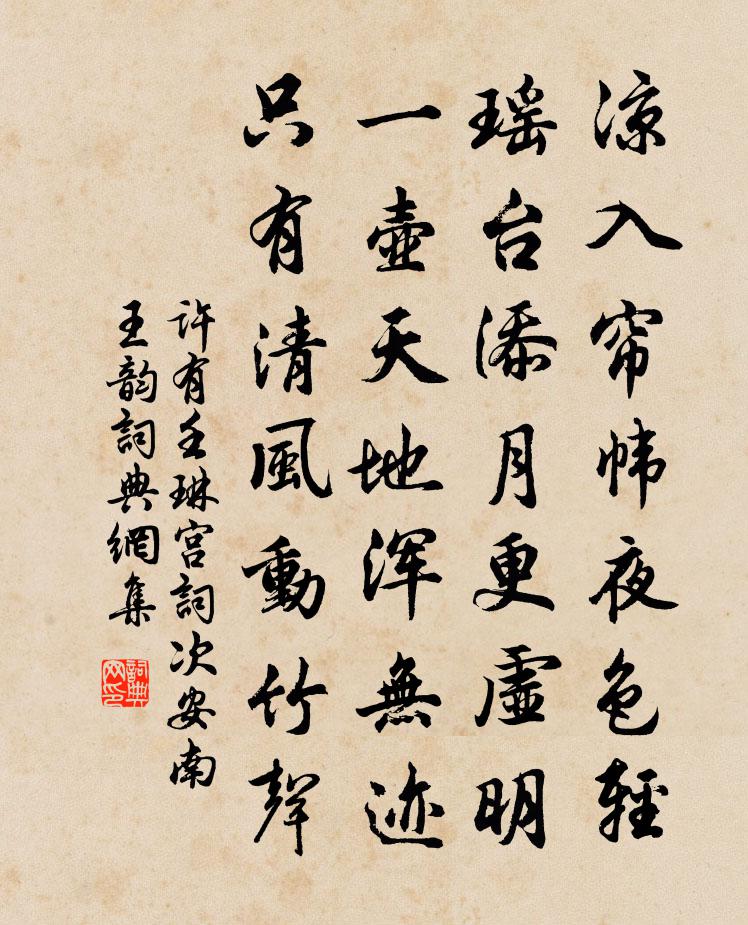 凉入帘帏夜色輕
瑶台添月更虛明
一壺天地浑無迹
只有清風動竹聲
許有壬琳宫詞次安南
王韵詞典網集
詞典网印